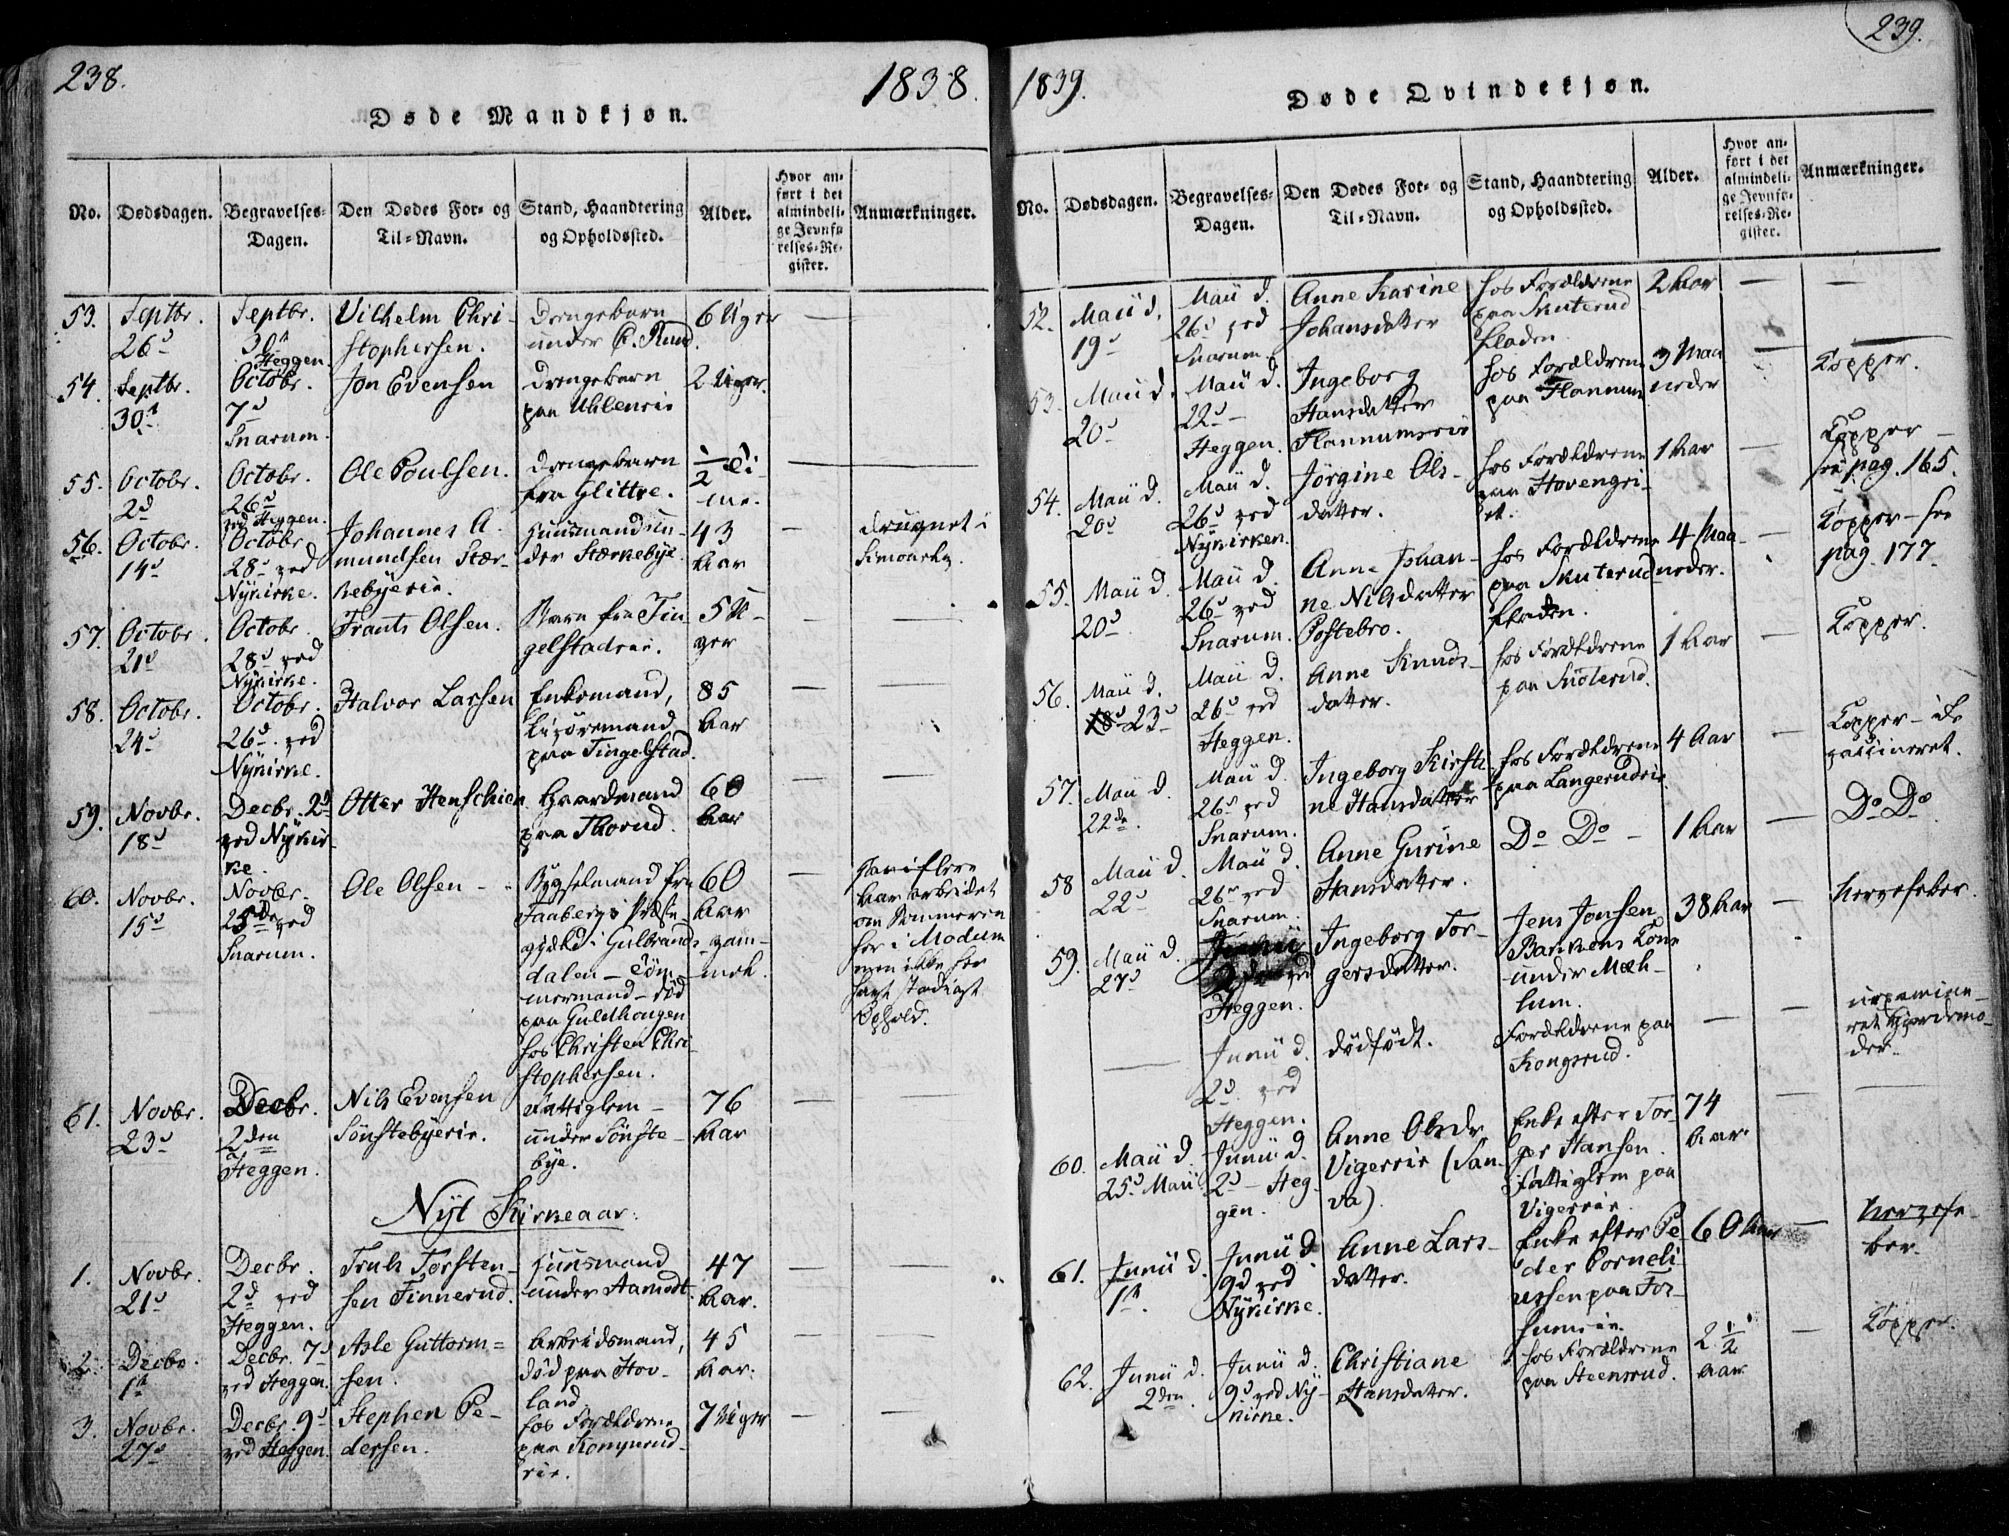 238.
1838.
Døde Mandkjøn.
No.
Dødsdagen.
Begravelses-
Dagen.
Den Dødes For- og
Til-Navn.
Stand, Haandtering
og Opholdssted.
Alder.
Hvor an-
ført i det
almindeli-
ge Jevnfø-
relses-Re-
gister.
Anmærkninger.
53.
Septbr.
26d
Septbr.
30d
Heggen.
Vilhelm Chri-
stophersen.
Drengebarn
under E. Rud.
6 Uger
54.
Septbr.
30d
Octobr.
7d
Snarum.
Jon Evensen
Drengebarn
paa Uhlenrie
2 Uger.
55.
Octobr.
2d
Octobr.
26d
ved Heggen.
Ole Poulsen.
Drengebarn
fra Glittre.
1/2 Ti-
me.
56.
Octobr.
14d
Octobr.
28d ved
Nykirke.
Johannes A-
mundsen Stær-
kebyerie.
Huusmand un-
der Stærkebye.
43
Aar
druknet i
Simoaelv.
57.
Octobr.
21d
Octobr.
28d ved
Nykirke.
Frants Olsen.
Barn fra Tin-
gelstadrie.
5 U-
ger
58.
Octobr.
24d
Octobr.
26d ved
Nykirke.
Halvor Larsen
Enkemand,
Livøremand
paa Tingelstad.
85
Aar
59.
Novbr.
18d
Decbr. 2d
ved Nykir-
ke.
Otter Henschien
Gaardmand
paa Thorud.
60
Aar
60.
Novbr.
15d
Novbr.
25de ved
Snarum.
Ole Olsen
Bygselmand fra
Faabergs Præste-
gjæld i Gulbrands-
dalen - Tøm-
mermand - død
paa Guldhougen
hos Christen Chri-
stophersen.
60
Aar
gam-
mel.
Har i flere
Aar arbeidet
om Sommeren
her i Modum
men ikke her
havt stadigt
Ophold.
61.
Novbr.
23d
Decbr.
2den
Heggen.
Nils Evensen
Sønstebyerie.
Fattiglem
under Sønste-
bye.
76
Aar
Nyt Kirkeaar.
1.
Novbr.
21d
Decbr.
2d ved
Heggen.
Truls Torsten-
sen Finnerud.
Huusmand
under Aamodt.
47
Aar.
2.
Decbr.
1ste
Decbr. 7d
ved Heggen.
Asle Guttorm=
sen.
Arbeidsmand,
død paa Hov-
land
45
Aar.
3.
Novbr.
27d
Decbr. 9d
ved Heggen.
Stephen Pe-
dersen.
hos Forældrene
paa Kongsrud-
rie.
7 Uger
239.
1839.
Døde Qvindekjøn.
No.
Dødsdagen.
Begravelses-
Dagen.
Den Dødes For- og
Til-Navn.
Stand, Haandtering
og Opholdssted.
Alder.
Hvor an-
ført i det
almindeli-
ge Jevnfø-
relses-Re-
gister.
Anmærkninger.
52.
Maii d.
19d
Maii d.
26d ved
Snarum.
Anne Karine
Johansdatter
hos Forældrene
paa Skuterud
fladen.
2 Aar
53.
Maii d.
20d
Maii d.
22d
Heggen.
Ingeborg
Hansdatter
Flannumsrie
hos Forældrene
paa Flannum
3 Maa
neder
Kopper.
54.
Maii d.
20d
Maii d.
26d ved
Nykirken.
Jørgine Ols-
datter.
hos Forældrene
paa Hovengri-
et.
1 Aar
Kopper
see pag. 165.
55.
Maii d.
20d
Maii d.
26d ved
Snarum.
Anne Johan-
ne Nilsdatter
Postebro.
hos Forældrene
paa Skuterud
fladen.
4 Maa-
neder.
Kopper - see
pag. 177
56.
Maii d.
23d
Maii d.
26d ved
Heggen.
Anne Knuds-
datter.
hos Forældrene
paa
1 Aar
Kopper.
57.
Maii d.
22de.
Maii d.
26d ved
Snarum.
Ingeborg Kirsti-
ne Hansdatter
hos Forældrene
paa Langerudrie
4 Aar
Kopper - ik
vaccineret.
58
Maii d.
22d
Maii d.
26d ved
Snarum.
Anne Gurine
Hansdatter.
Do Do
1 Aar
Do Do.
59.
Maii d.
27d
Junii
2den ved
Heggen.
Ingeborg Tor-
gersdatter.
Jens Jonsen
Barkens Kone
under Meh-
lum.
38 Aar
Nervefeber.
Junii d.
2d ved
Heggen.
dødfødt.
Forældrene paa
Kongsrud.
uexamine-
ret Gjordemo-
der.
60.
Maii d.
25d Maii
Junii d.
2d Heg-
gen.
Anne Olsdr
Vigersrie (San-
da)
Enke efter Tor-
ger Hansen
Fattiglem paa
Vigersrie.
74
Aar
61.
Junii d.
1ste.
Junii d.
9d ved
Nykirke.
Anne Lars-
datter.
Enke efter Pe-
der Corneli-
ussen paa
60 Aar
Nervefe-
ber.
62.
Junii d.
2den.
Junii d.
9d ved Ny-
kirke.
Christiane
Hansdatter.
hos Forældrene
paa Steensrud.
2 1/2
Aar
Kopper.